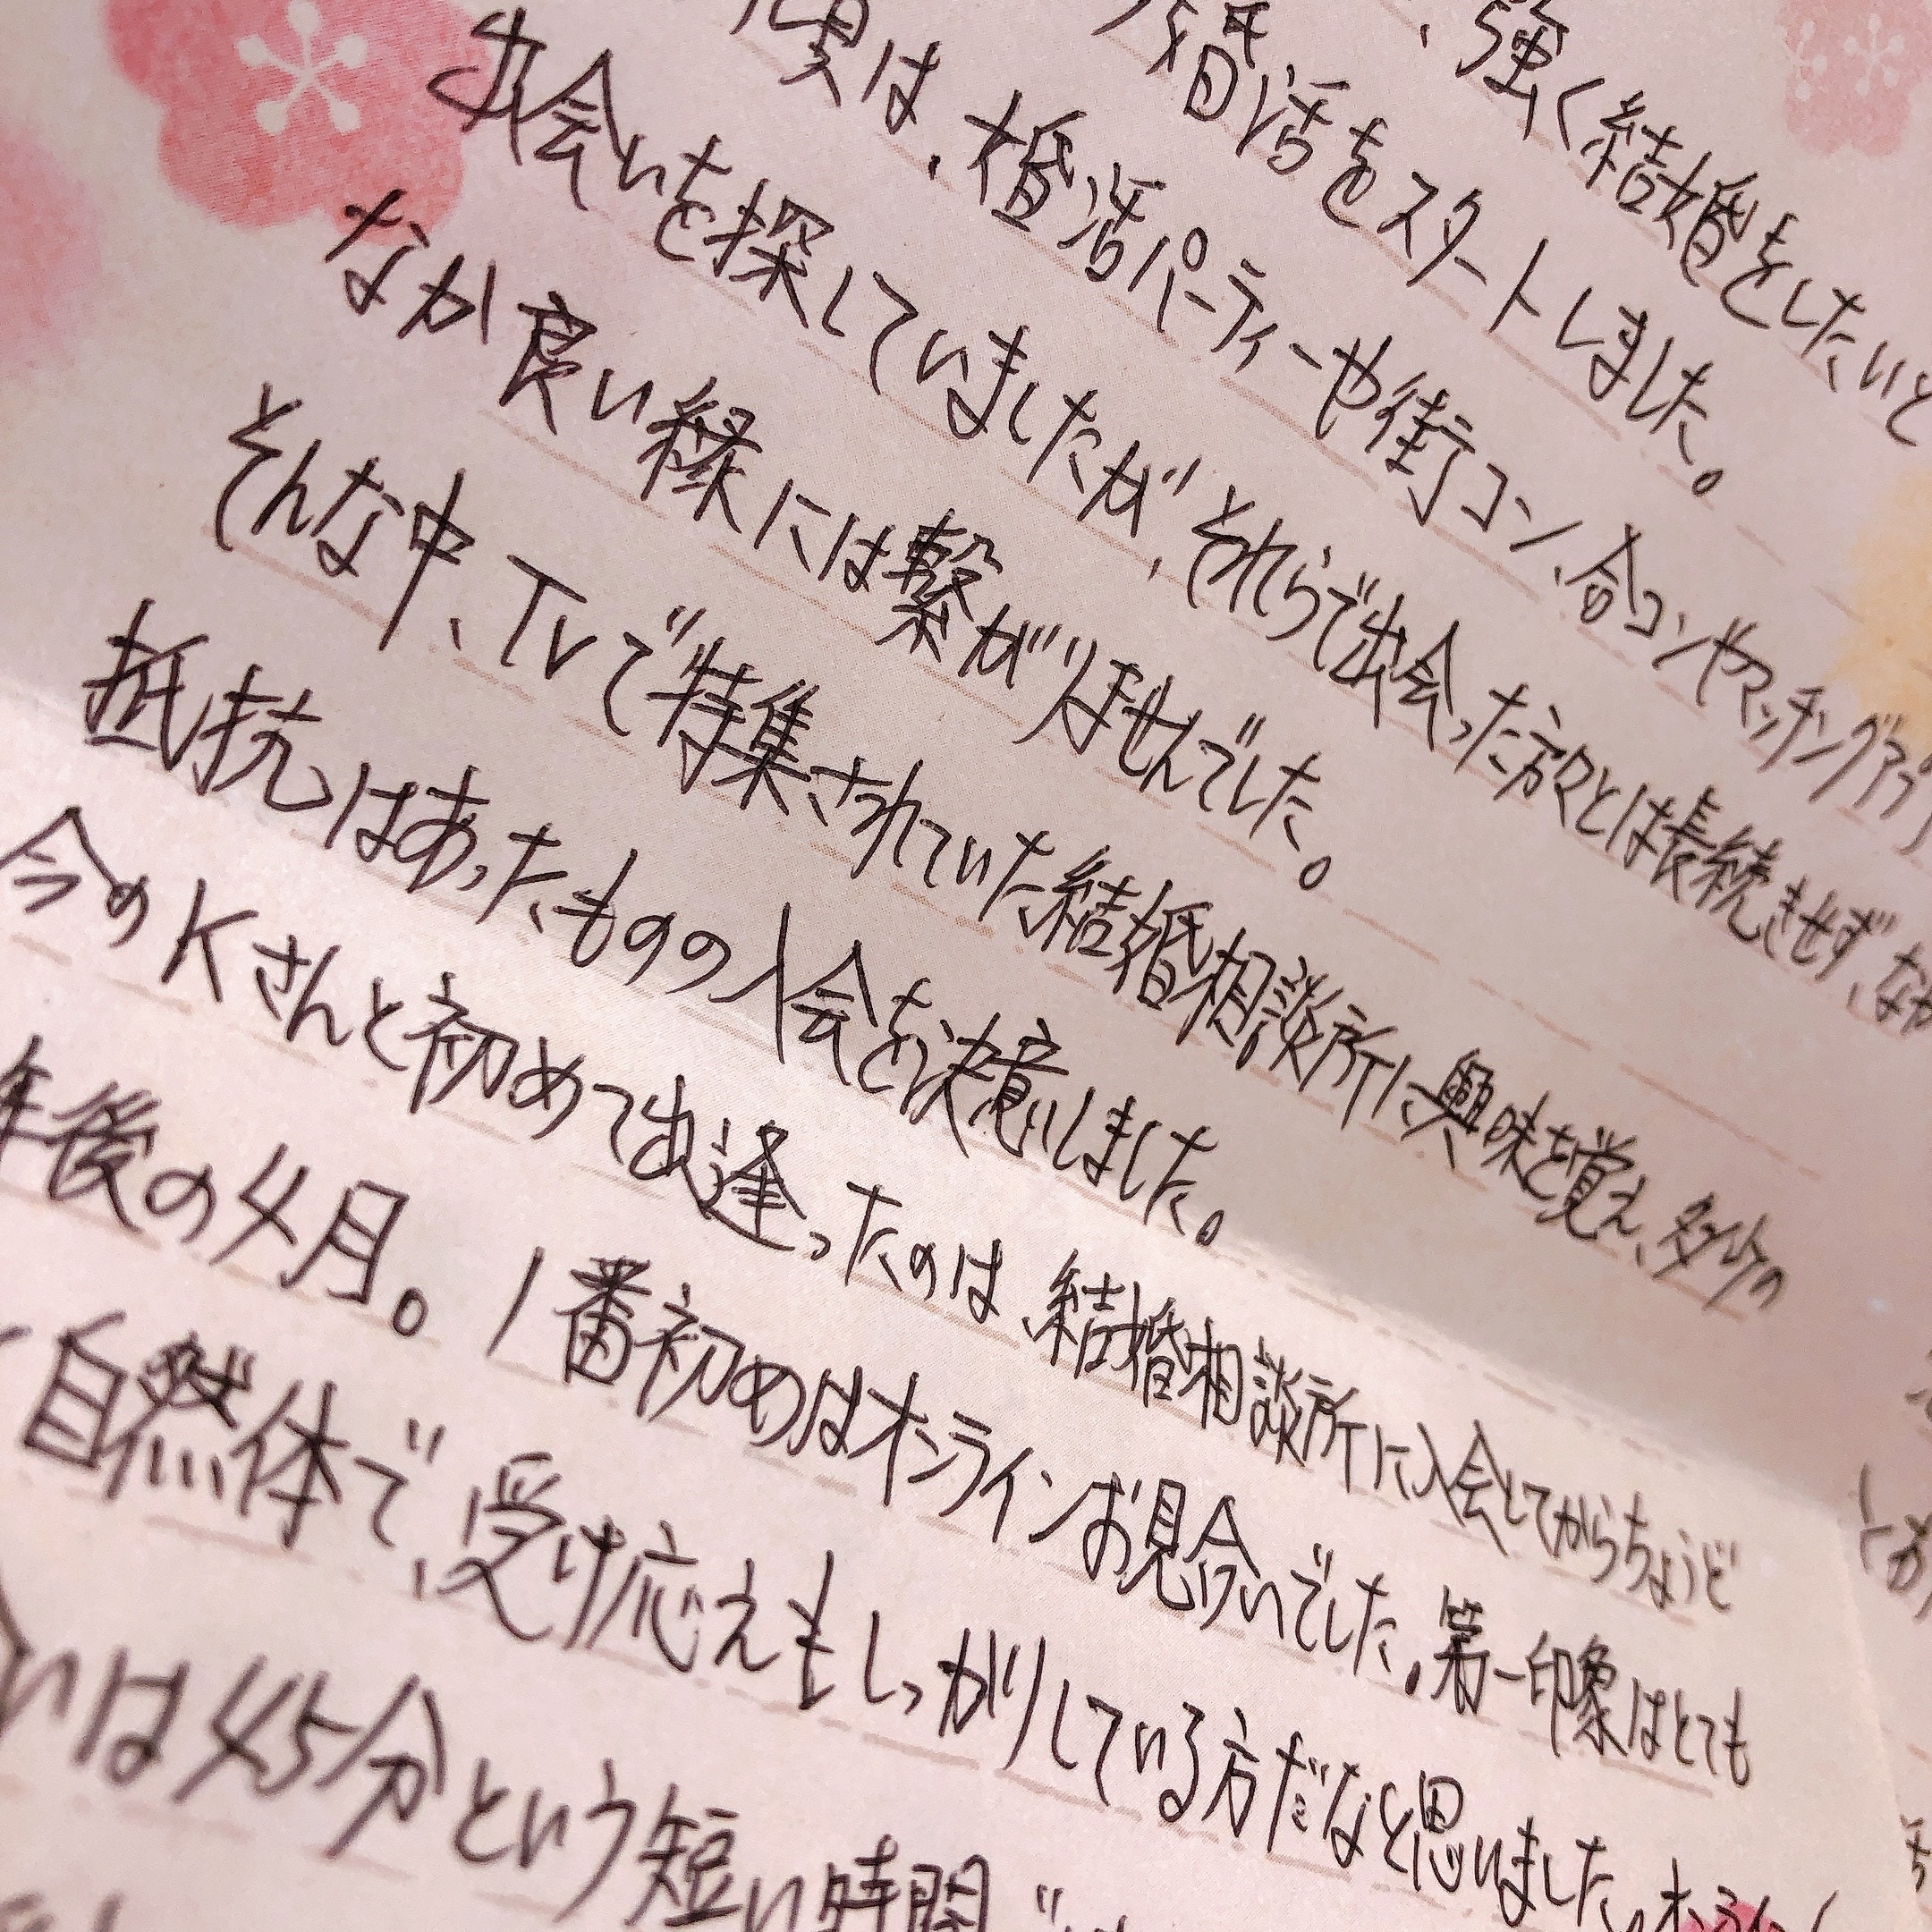 、強く結婚をしたいと
婚活をスタートしました。
実は、婚活パーティーや街コン、合コンやマッチングアプリ
出会いを探していましたが、それらで出会った方々とは長続きせず、なか
なか良い縁には繋がりませんでした。
そんな中、TVで特集されていた結婚相談所に興味を覚え、多少の
抵抗はあったものの入会を決意しました。
今のKさんと初めて出逢ったのは、結婚相談所に入会してからちょうど
年後の4月。1番初めはオンラインお見合いでした。第一印象はとても
自然体で、受け応えもしっかりしている方だなと思いました。オンライン
いは45分という短い時間